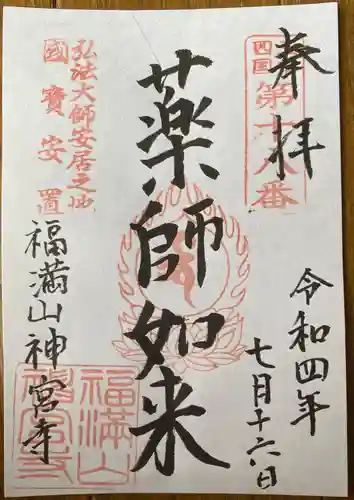 奉拝
四国
第十八番
令和四年
七月十六日
薬師如来
弘法大師安居之地
國寶安置
福満山神宮寺
福満山
神宮寺